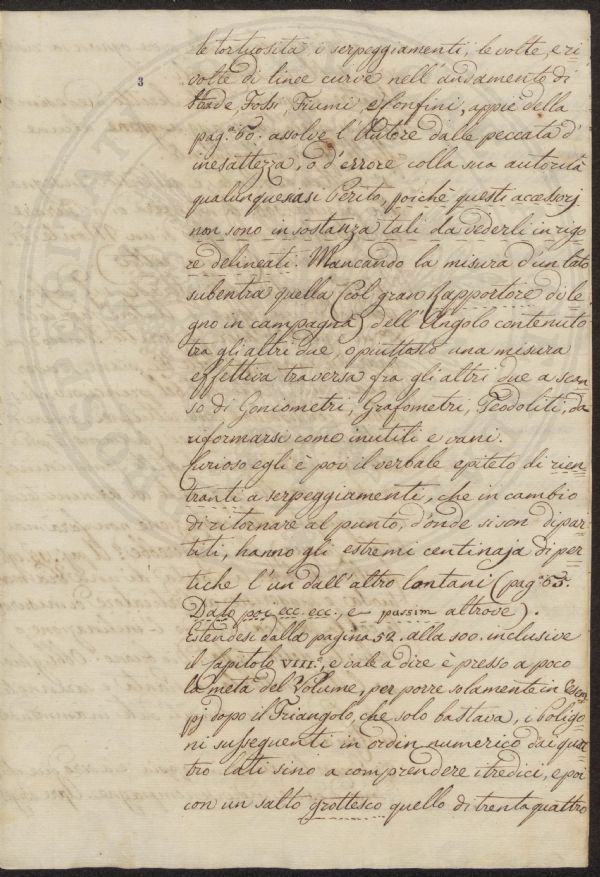 3
le tortuosità i serpeggiamenti, le volte, e ri
volte di linee curve nell'andamento di
Strade, Fossi, Fiumi, e Confini, appiè della
pag.ª 60. assolve l'Autore dalle peccata d'
inesattezza, o d'errore colla sua autorità
qualunquesiasi Perito, poichè questi accessorj
non sono in sostanza tali da vederli in rigo
re delineati. Mancando la misura d'un lato
subentra quella (col gran Rapportore di le
gno in campagna) dell'Angolo contenuto
tra gli altri due, o piuttosto una misura
effettiva traversa fra gli altri due a scan
so di Goniometri, Grafometri, Teodoliti, da
riformarsi come inutili e vani.
Curioso egli è poi il verbale epiteto di rien
tranti a serpeggiamenti, che in cambio
di ritornare al punto, d'onde si son dipar
titi, hanno gli estremi centinaja di per
tiche l'un dall'altro lontani (pag.ª 63.
Dato poi ecc. ecc. e passim altrove).
Estendesi dalla pagina 52. alla 100. inclusive
il Capitolo VIII.º, e vale a dire è presso a poco
la metà del Volume, per porre solamente in Esem
pj dopo il Triangolo, che solo bastava, i Poligo
ni sussequenti in ordin numerico dai quat
tro lati sino a comprendere i tredici, e poi
con un salto grottesco quello di trentaquattro